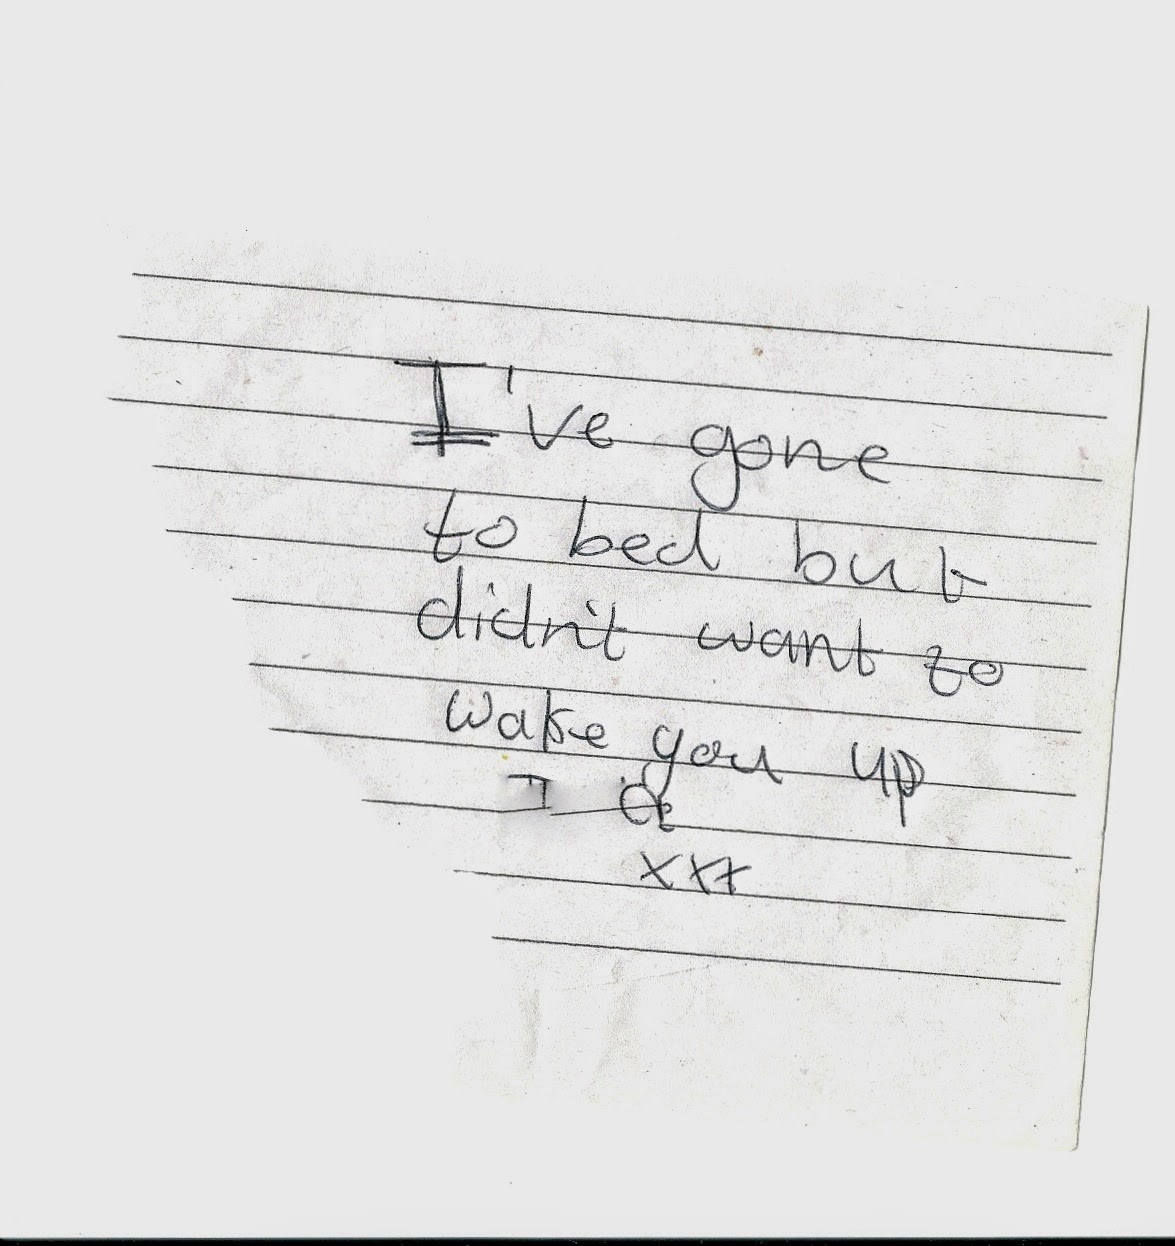 I've gone
to bed but
didn't want to
wake you up
xxx